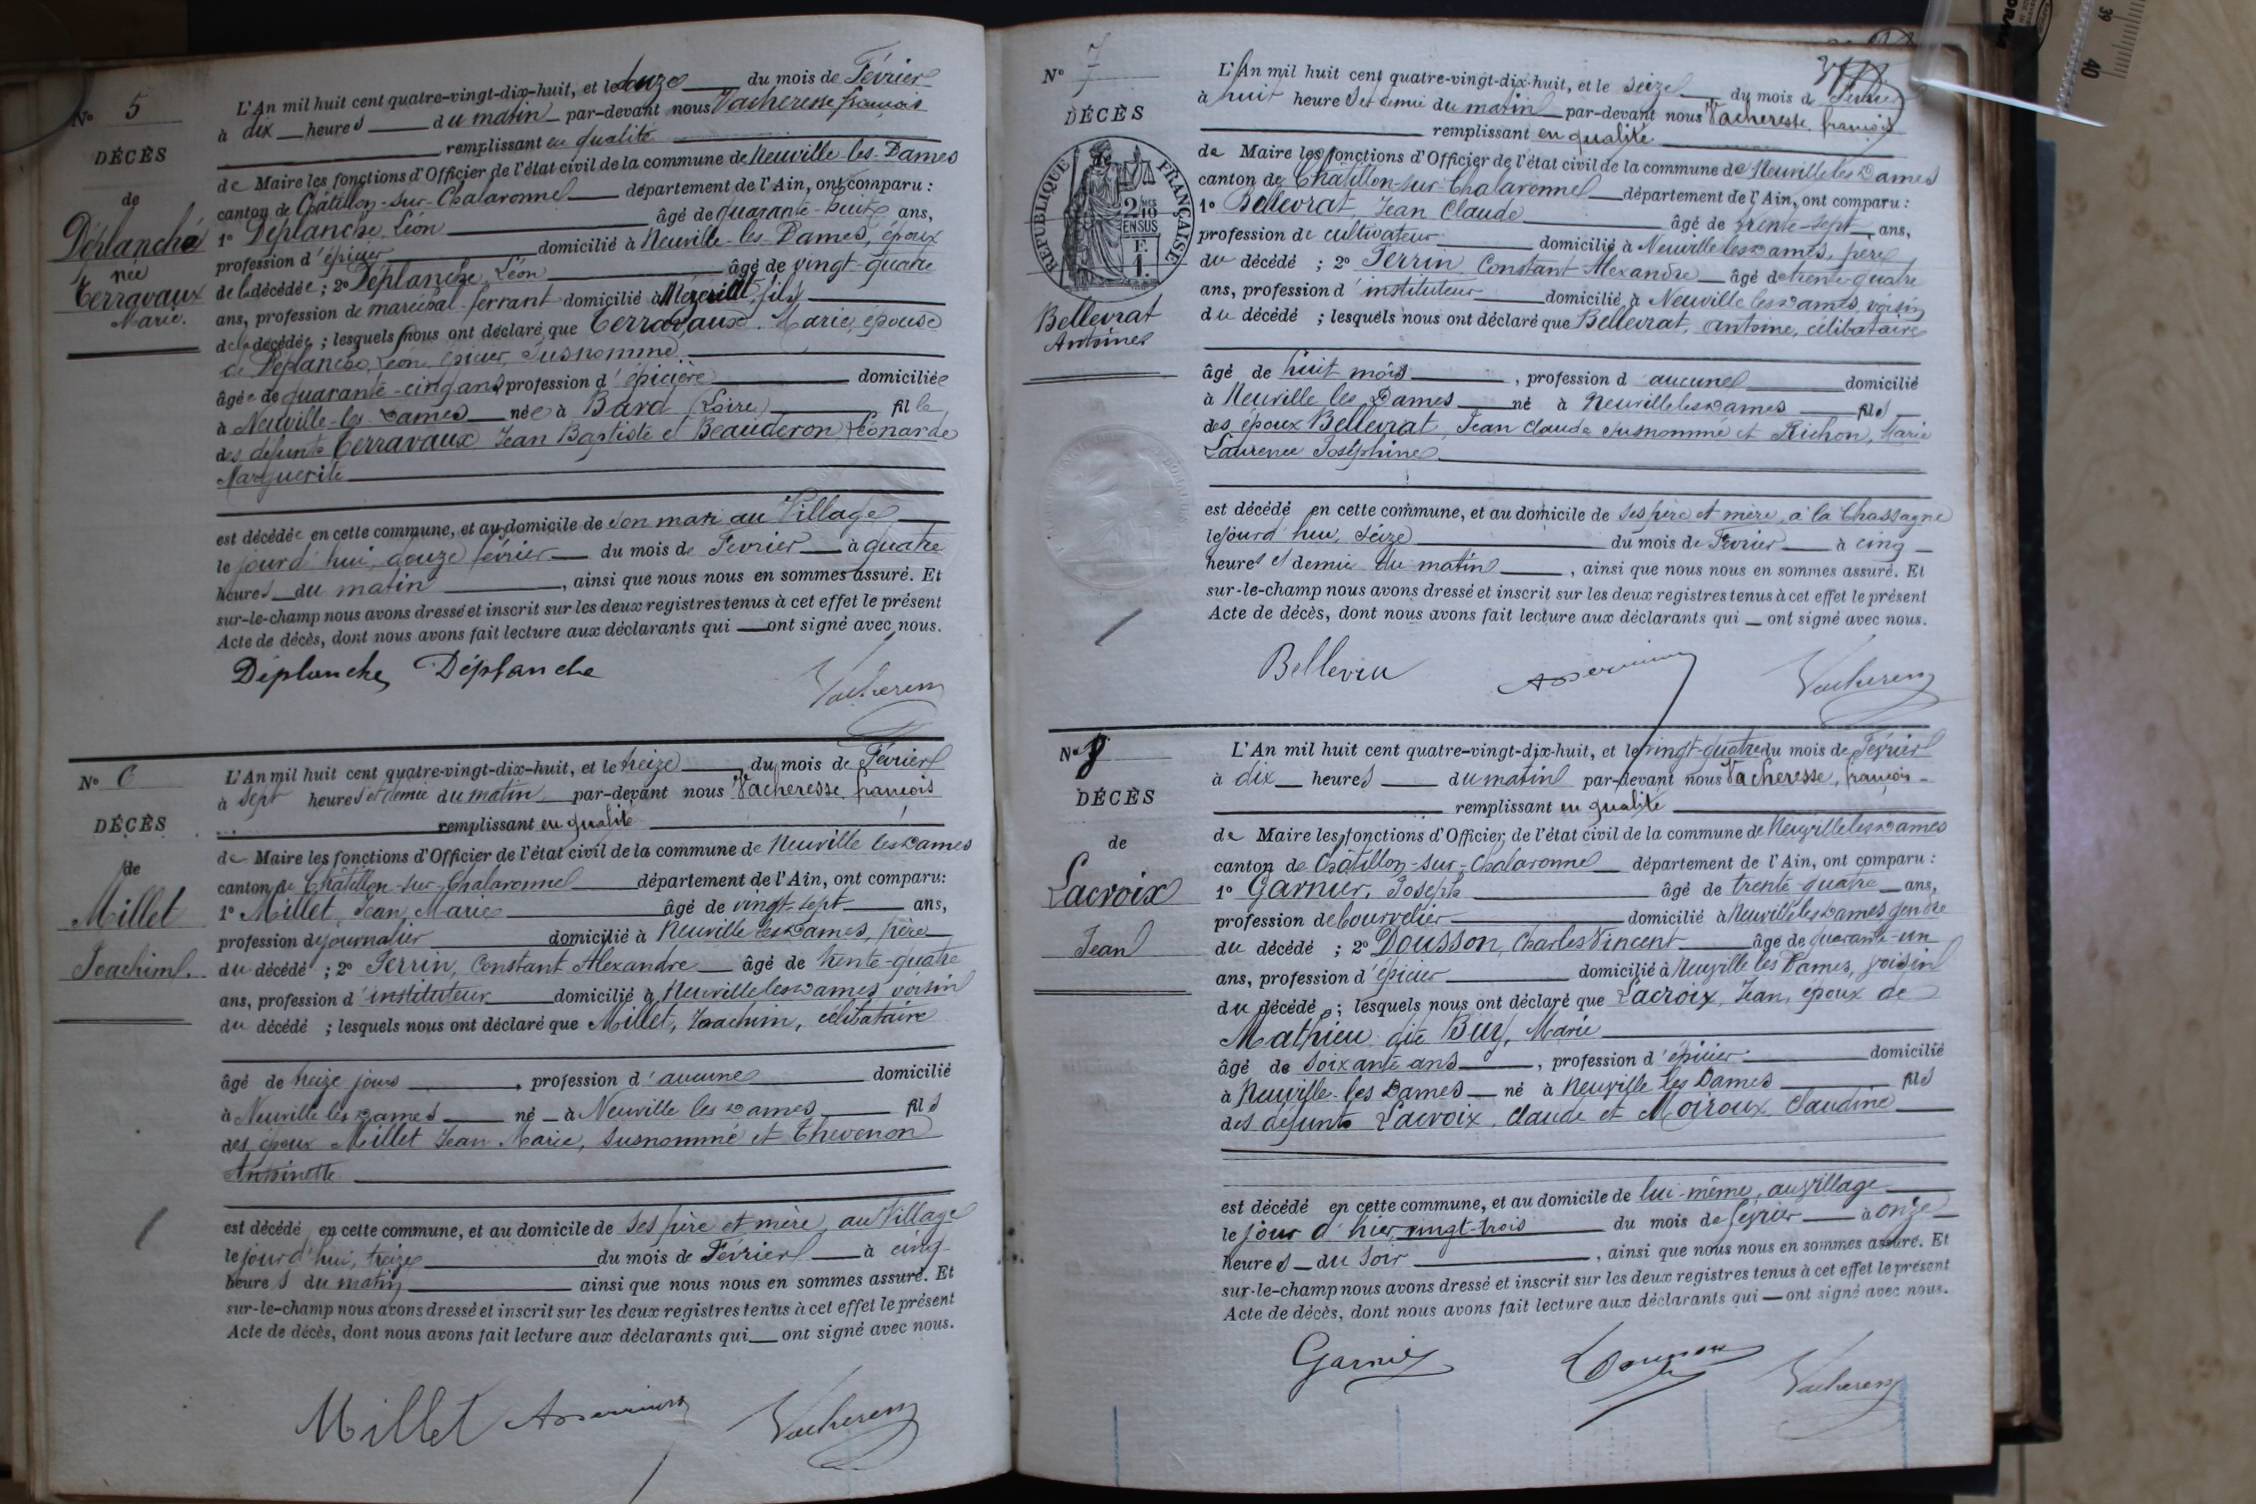 N° 5
DÉCÈS
de
Déplanche
née
Terravaux
Marie.
L'An mil huit cent quatre-vingt-dix-huit, et le douze du mois de Février
à dix heures du matin par-devant nous Vacheresse françois
remplissant en qualité
de Maire les fonctions d'Officier de l'état civil de la commune de Neuville-les-Dames
canton de Châtillon-sur-Chalaronne département de l'Ain, ont comparu :
1° Déplanche, Léon âgé de quarante-huit ans,
profession d'épicier domicilié à Neuville-les-Dames, époux
de la décédée ; 2° Déplanche, Léon âgé de vingt-quatre
ans, profession de maréchal-ferrant domicilié à Mézériat, fils
de la décédée ; lesquels nous ont déclaré que Terravaux, Marie, épouse
de Déplanche, Léon, épicier, susnommé
âgée de quarante-cinq ans, profession d'épicière domiciliée
à Neuville-les-Dames née à Bard (Loire) fille
des défunts Terravaux Jean Baptiste et Beauderon Léonarde
Marguerite
est décédée en cette commune, et au domicile de son mari au Village
le jourd'hui, douze février du mois de Février à quatre
heures du matin, ainsi que nous nous en sommes assuré. Et
sur-le-champ nous avons dressé et inscrit sur les deux registres tenus à cet effet le présent
Acte de décès, dont nous avons fait lecture aux déclarants qui ont signé avec nous.
Déplanche Déplanche Vacheresse
N° 6
DÉCÈS
de
Millet
Joachim.
L'An mil huit cent quatre-vingt-dix-huit, et le treize du mois de Février
à sept heures et demie du matin par-devant nous Vacheresse, françois
remplissant en qualité
de Maire les fonctions d'Officier de l'état civil de la commune de Neuville les Dames
canton de Châtillon-sur-Chalaronne département de l'Ain, ont comparu :
1° Millet, Jean Marie âgé de vingt-sept ans,
profession de journalier domicilié à Neuville les Dames, père
du décédé ; 2° Perrin, Constant Alexandre âgé de trente-quatre
ans, profession d'instituteur domicilié à Neuville les Dames voisin
du décédé ; lesquels nous ont déclaré que Millet, Joachim, célibataire
âgé de treize jours, profession d'aucune domicilié
à Neuville les Dames né à Neuville les Dames fils
des époux Millet Jean Marie, susnommé et Thevenon
Antoinette
est décédé en cette commune, et au domicile de ses père et mère, au Village
le jourd'hui, treize du mois de Février à cinq
heures du matin ainsi que nous nous en sommes assuré. Et
sur-le-champ nous avons dressé et inscrit sur les deux registres tenus à cet effet le présent
Acte de décès, dont nous avons fait lecture aux déclarants qui ont signé avec nous.
Millet Vacheresse
N° 7
DÉCÈS
de
RÉPUBLIQUE FRANÇAISE
2/10 EN SUS
Bellevrat
Antoine
L'An mil huit cent quatre-vingt-dix-huit, et le seize du mois de Février
à huit heures et demie du matin par-devant nous Vacheresse, françois
remplissant en qualité
de Maire les fonctions d'Officier de l'état civil de la commune de Neuville les Dames
canton de Châtillon-sur-Chalaronne département de l'Ain, ont comparu :
1° Bellevrat, Jean Claude âgé de trente-sept ans,
profession de cultivateur domicilié à Neuville les Dames, père
du décédé ; 2° Perrin, Constant Alexandre âgé de trente-quatre
ans, profession d'instituteur domicilié à Neuville les Dames, voisin
du décédé ; lesquels nous ont déclaré que Bellevrat, antoine, célibataire
âgé de huit mois, profession d aucune domicilié
à Neuville les Dames né à Neuville les Dames fils
des époux Bellevrat, Jean Claude susnommé et Richon, Marie
Laurence Joséphine
est décédé en cette commune, et au domicile de ses père et mère, à la Chassagne
le jourd'hui, seize du mois de Février à cinq
heures et demie du matin, ainsi que nous nous en sommes assuré. Et
sur-le-champ nous avons dressé et inscrit sur les deux registres tenus à cet effet le présent
Acte de décès, dont nous avons fait lecture aux déclarants qui ont signé avec nous.
Vacheresse
N° 8
DÉCÈS
de
Lacroix
Jean
L'An mil huit cent quatre-vingt-dix-huit, et le vingt-quatre du mois de Février
à dix heures du matin par-devant nous Vacheresse, françois
remplissant en qualité
de Maire les fonctions d'Officier de l'état civil de la commune de Neuville les Dames
canton de Châtillon-sur-Chalaronne département de l'Ain, ont comparu :
1° Garnier, Joseph âgé de trente-quatre ans,
profession de bourrelier domicilié à Neuville les Dames gendre
du décédé ; 2° Dousson, Charles Vincent âgé de quarante-un
ans, profession d'épicier domicilié à Neuville les Dames, voisin
du décédé ; lesquels nous ont déclaré que Lacroix, Jean, époux de
Mathieu dite Buy, Marie
âgé de soixante ans, profession d'épicier domicilié
à Neuville-les-Dames né à Neuville les Dames fils
des défunts Lacroix, Claude et Moiroux Claudine
est décédé en cette commune, et au domicile de lui-même, au village
le jour d'hier, vingt-trois du mois de février à onze
heures du soir, ainsi que nous nous en sommes assuré. Et
sur-le-champ nous avons dressé et inscrit sur les deux registres tenus à cet effet le présent
Acte de décès, dont nous avons fait lecture aux déclarants qui ont signé avec nous.
Garnier Dousson Vacheresse
39
40